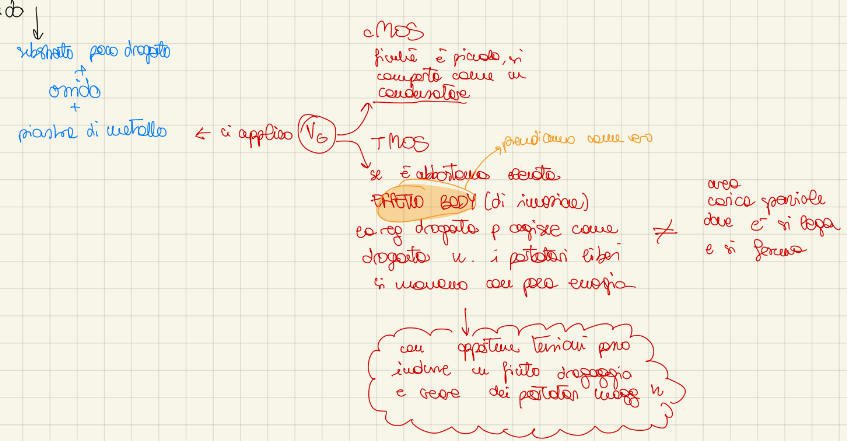 substrato poco drogato
+
ossido
+
piastre di metallo
← ci applico V_G
cMOS
finché è piccola, si
comporta come un
condensatore
TMOS
prendiamo come vero
se è abbastanza elevata
EFFETTO BODY (di inversione)
la reg drogata p agisce come
drogata n. i portatori liberi
si muovono con poca energia
≠
area
carica spaziale
dove e⁻ si lega
e si ferma
con opportune tensioni posso
indurre un finto drogaggio
e creare dei portatori magg n